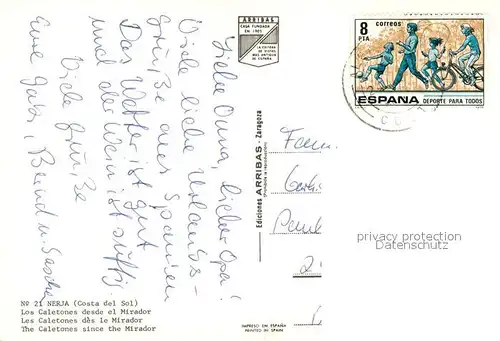 ARRIBAS
CASA FUNDADA
EN 1905
LA EDITORA
DE POSTAL
MAS ANTIGUA
DE ESPAÑA
8
PTA
correos
ESPAÑA DEPORTE PARA TODOS
Liebe Oma, lieber Opa!
Viele liebe Urlaubs-
grüße aus Spanien
Das Wetter ist gut
und der Wein ist süffig.
Viele Grüße
Eure Gabi, Bernd u. Sascha
Ediciones ARRIBAS - Zaragoza
Fam.
privacy protection
Datenschutz
Nº 21 NERJA (Costa del Sol)
Los Caletones desde el Mirador
Les Caletones dès le Mirador
The Caletones since the Mirador
IMPRESO EN ESPAÑA
PRINTED IN SPAIN